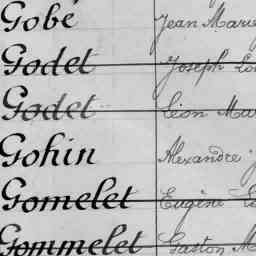 Gobé Jean Marie
Godet Joseph
Godet Léon
Gohin Alexandre
Gomelet Eugène
Gommelet Gaston